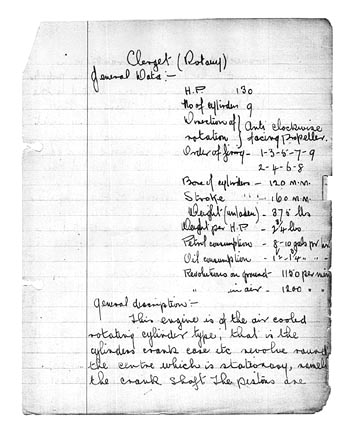 Clerget (Rotary)
General Data :-
H.P 130
No of cylinders 9
Direction of } Anti clockwise
rotation } facing propeller.
Order of firing - 1-3-5-7-9
2-4-6-8
Bore of cylinders - 120 m.m.
Stroke " " - 160 m.m.
Weight (unladen) - 375 lbs
Weight per H.P - lbs
Petrol consumption - 8-10 gals per
Oil consumption -
Revolutions on ground - 1150 per min
" in air - 1200 " "
General description :-
This engine is of the air cooled
rotating cylinder type, that is the
cylinders crank case etc revolve round
the centre which is stationary,
the crank shaft The pistons are